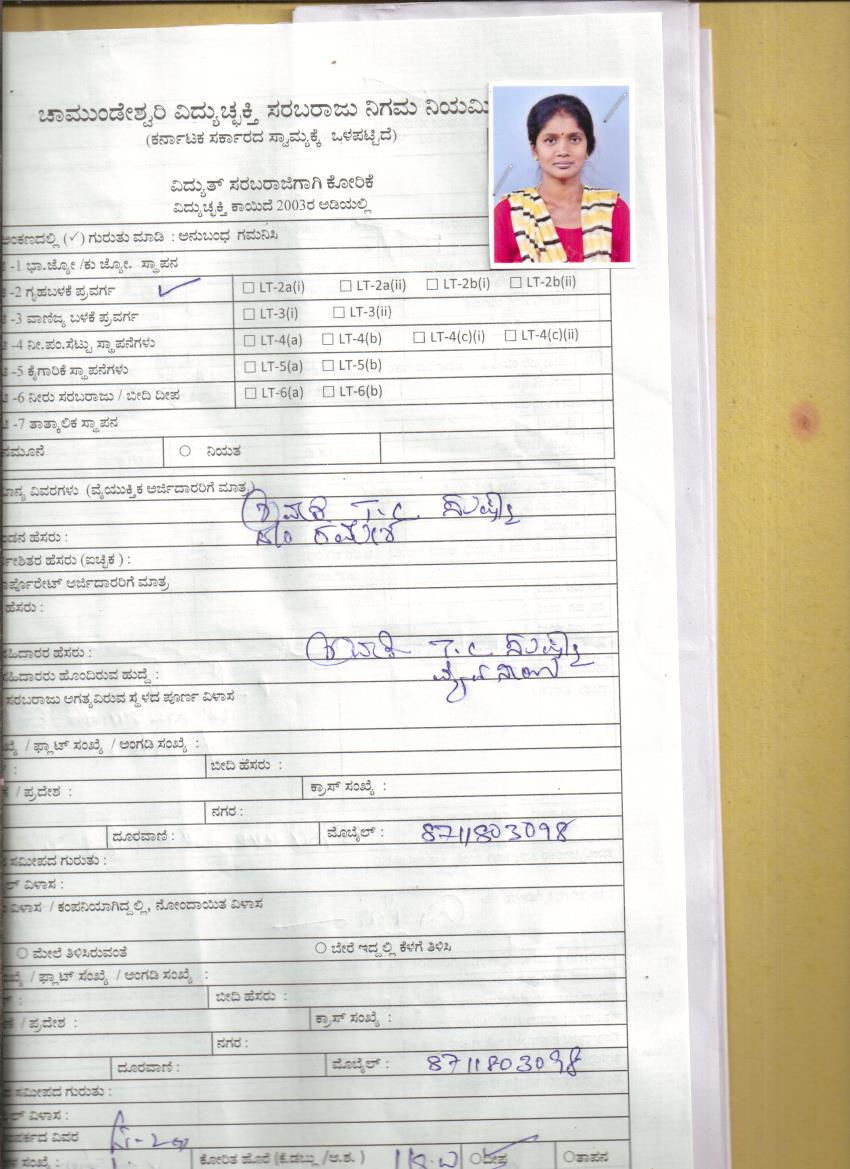 ಚಾಮುಂಡೇಶ್ವರಿ ವಿದ್ಯುಚ್ಛಕ್ತಿ ಸರಬರಾಜು ನಿಗಮ ನಿಯಮಿ
(ಕರ್ನಾಟಕ ಸರ್ಕಾರದ ಸ್ವಾಮ್ಯಕ್ಕೆ ಒಳಪಟ್ಟಿದೆ)
ವಿದ್ಯುತ್ ಸರಬರಾಜಿಗಾಗಿ ಕೋರಿಕೆ
ವಿದ್ಯುಚ್ಛಕ್ತಿ ಕಾಯಿದೆ 2003ರ ಅಡಿಯಲ್ಲಿ
ಅಂಕಣದಲ್ಲಿ (✓) ಗುರುತು ಮಾಡಿ : ಅನುಬಂಧ ಗಮನಿಸಿ
-1 ಭಾ.ಜ್ಯೋ /ಕು ಜ್ಯೋ. ಸ್ಥಾಪನ
-2 ಗೃಹಬಳಕೆ ಪ್ರವರ್ಗ ✓ ☐ LT-2a(i) ☐ LT-2a(ii) ☐ LT-2b(i) ☐ LT-2b(ii)
-3 ವಾಣಿಜ್ಯ ಬಳಕೆ ಪ್ರವರ್ಗ ☐ LT-3(i) ☐ LT-3(ii)
-4 ನೀ.ಪಂ.ಸೆಟ್ಟು ಸ್ಥಾಪನೆಗಳು ☐ LT-4(a) ☐ LT-4(b) ☐ LT-4(c)(i) ☐ LT-4(c)(ii)
-5 ಕೈಗಾರಿಕೆ ಸ್ಥಾಪನೆಗಳು ☐ LT-5(a) ☐ LT-5(b)
-6 ನೀರು ಸರಬರಾಜು / ಬೀದಿ ದೀಪ ☐ LT-6(a) ☐ LT-6(b)
-7 ತಾತ್ಕಾಲಿಕ ಸ್ಥಾಪನ
ನಮೂನೆ ○ ನಿಯತ
ವಿವರಗಳು (ವೈಯುಕ್ತಿಕ ಅರ್ಜಿದಾರರಿಗೆ ಮಾತ್ರ)
T.C.
ಹೆಸರು : ರಮೇಶ
ಹೆಸರು (ಐಚ್ಛಿಕ ) :
ಅರ್ಜಿದಾರರಿಗೆ ಮಾತ್ರ
ಹೆಸರು :
ಸಹಿದಾರರ ಹೆಸರು : T.C.
ಸಹಿದಾರರು ಹೊಂದಿರುವ ಹುದ್ದೆ :
ಸರಬರಾಜು ಅಗತ್ಯವಿರುವ ಸ್ಥಳದ ಪೂರ್ಣ ವಿಳಾಸ
/ ಫ್ಲಾಟ್ ಸಂಖ್ಯೆ / ಅಂಗಡಿ ಸಂಖ್ಯೆ :
: ಬೀದಿ ಹೆಸರು :
/ ಪ್ರದೇಶ : ಕ್ರಾಸ್ ಸಂಖ್ಯೆ :
ನಗರ :
ದೂರವಾಣಿ : ಮೊಬೈಲ್ : 8711803098
ಸಮೀಪದ ಗುರುತು :
ವಿಳಾಸ :
ವಿಳಾಸ / ಕಂಪನಿಯಾಗಿದ್ದಲ್ಲಿ, ನೋಂದಾಯಿತ ವಿಳಾಸ
○ ಮೇಲೆ ತಿಳಿಸಿರುವಂತೆ ○ ಬೇರೆ ಇದ್ದಲ್ಲಿ ಕೆಳಗೆ ತಿಳಿಸಿ
/ ಫ್ಲಾಟ್ ಸಂಖ್ಯೆ / ಅಂಗಡಿ ಸಂಖ್ಯೆ :
: ಬೀದಿ ಹೆಸರು :
/ ಪ್ರದೇಶ : ಕ್ರಾಸ್ ಸಂಖ್ಯೆ :
ನಗರ :
ದೂರವಾಣಿ : ಮೊಬೈಲ್ : 8711803098
ಸಮೀಪದ ಗುರುತು :
ವಿಳಾಸ :
ವಿವರ
ಸಂಖ್ಯೆ : ಕೋರಿತ ಹೊರೆ (ಕೆ.ಡಬ್ಲು /ಅ.ಶ. ) ○ದೀಪ ○ತಾಪನ